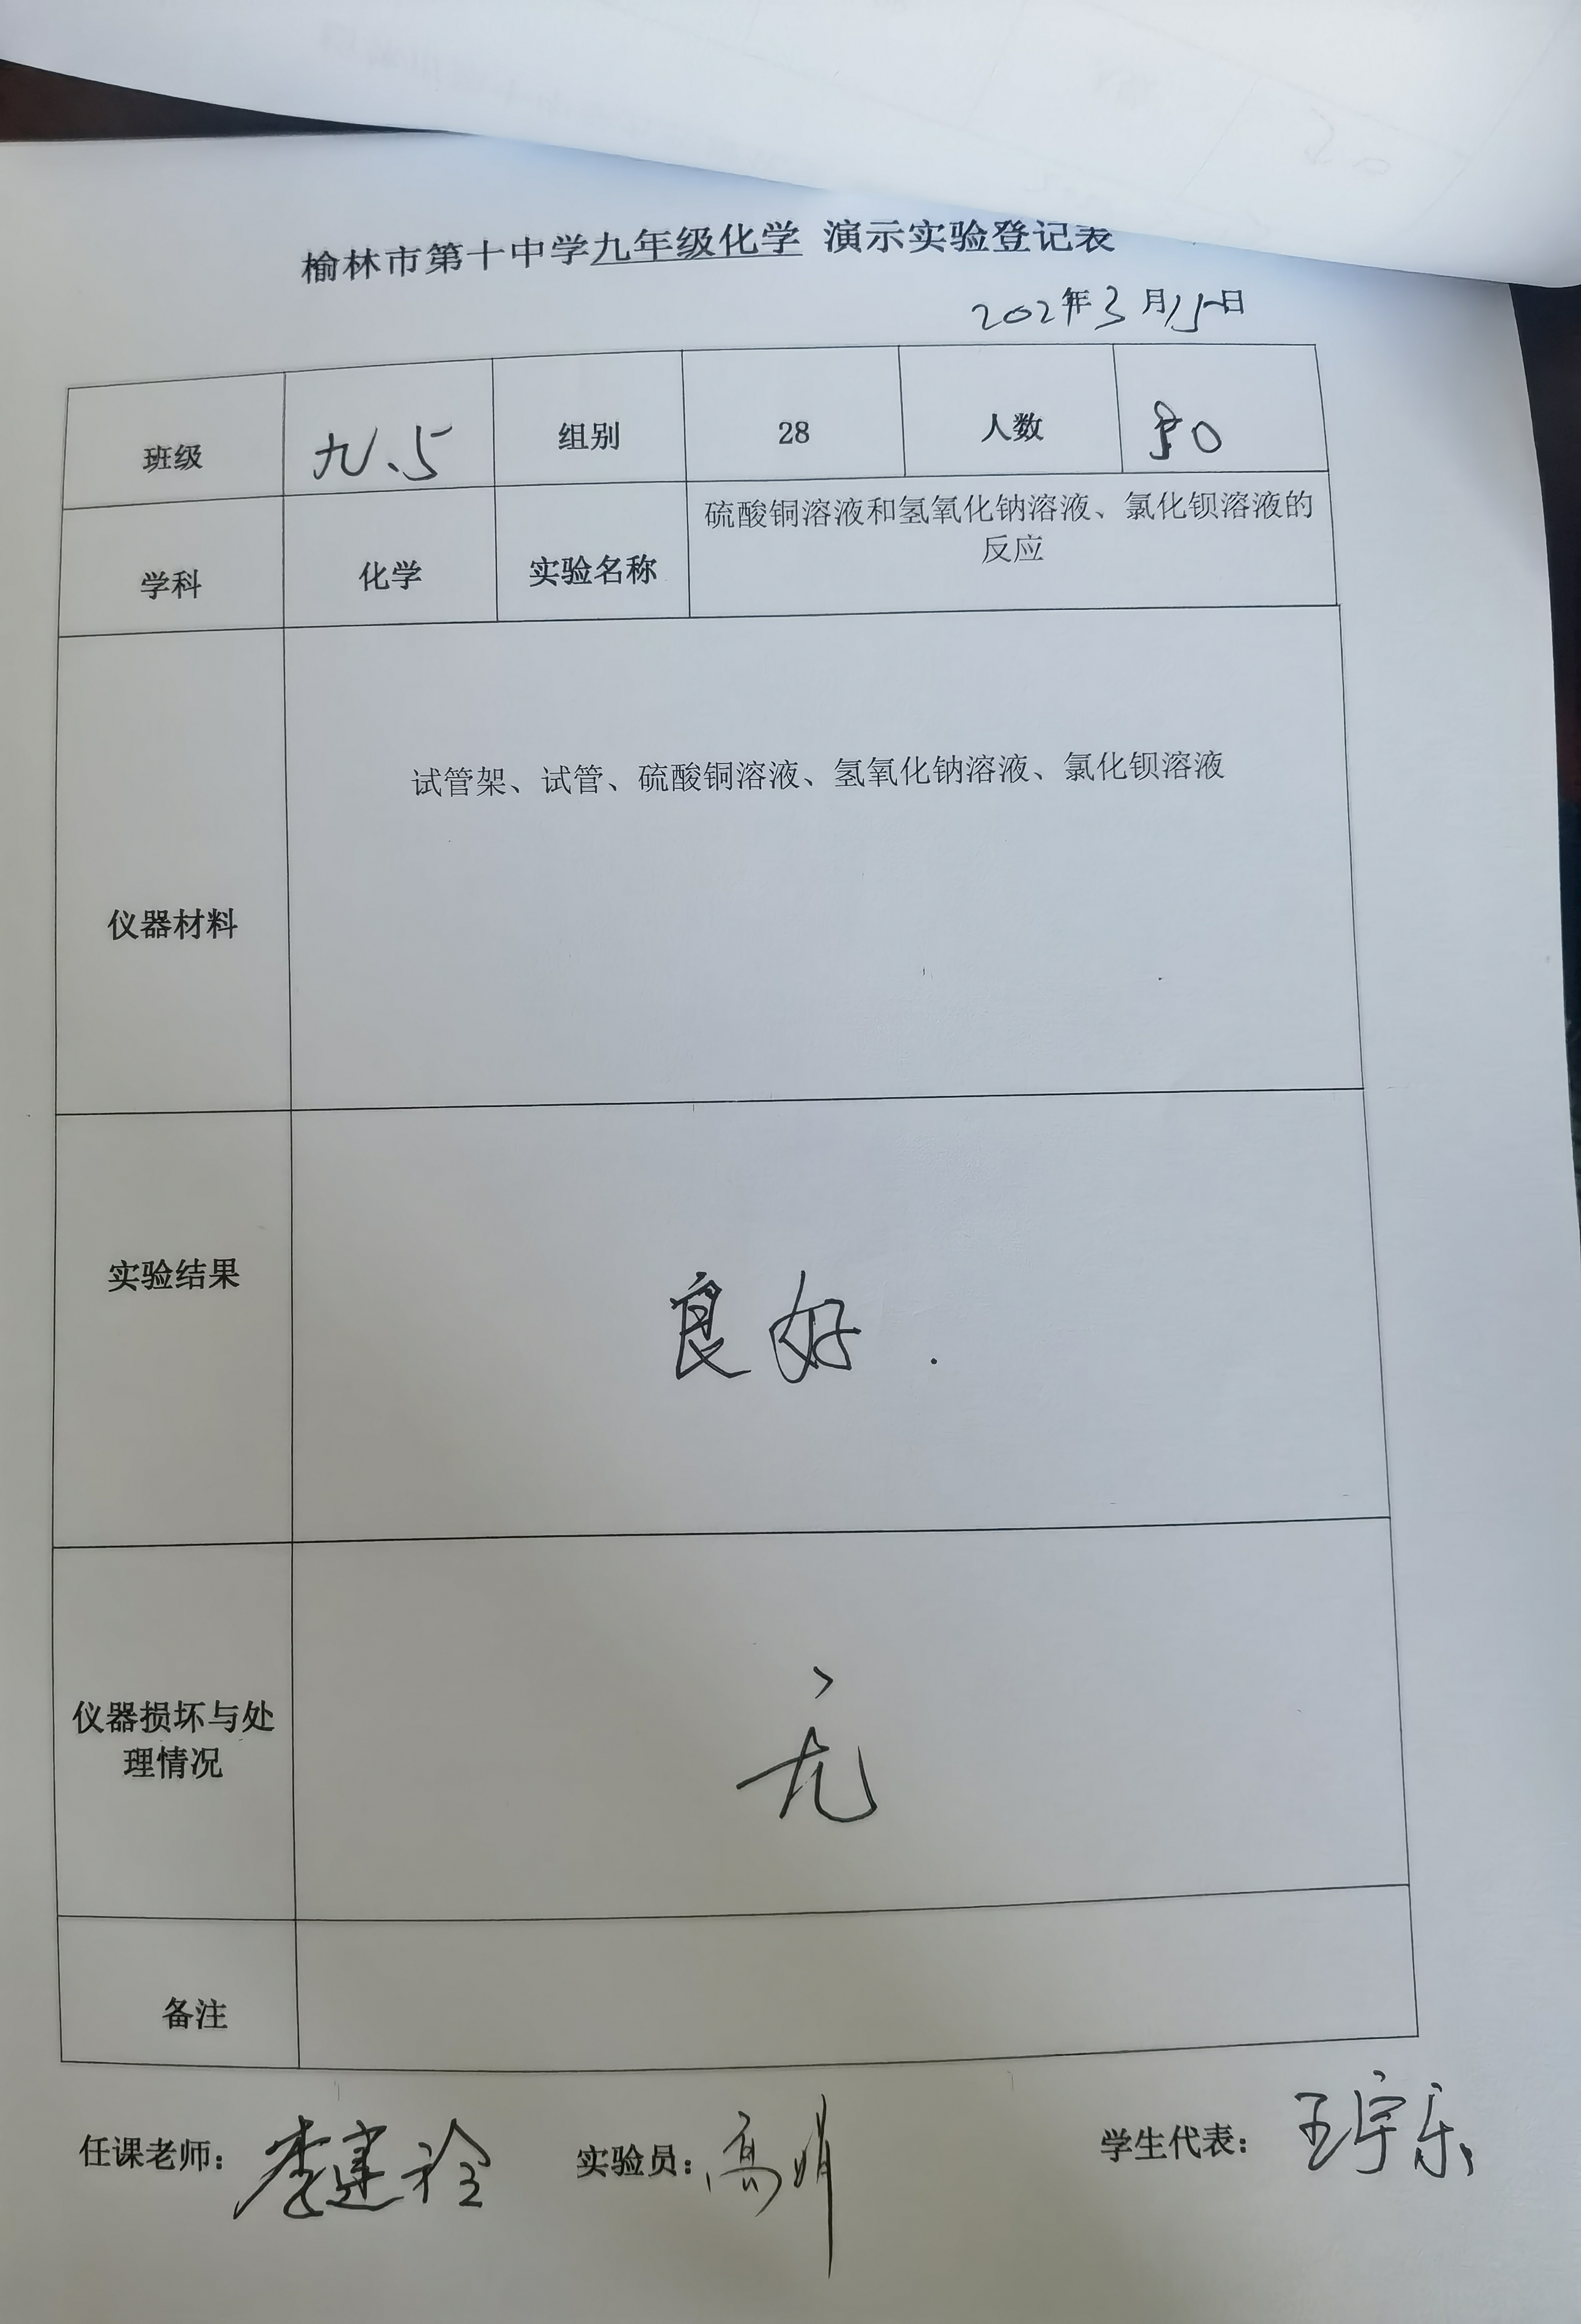 榆林市第十中学九年级化学 演示实验登记表
年3月15日
班级 九.5 组别 28 人数
学科 化学 实验名称 硫酸铜溶液和氢氧化钠溶液、氯化钡溶液的
反应
仪器材料 试管架、试管、硫酸铜溶液、氢氧化钠溶液、氯化钡溶液
实验结果 良好.
仪器损坏与处
理情况 无
备注
任课老师: 实验员: 高娟 学生代表: 王宇乐